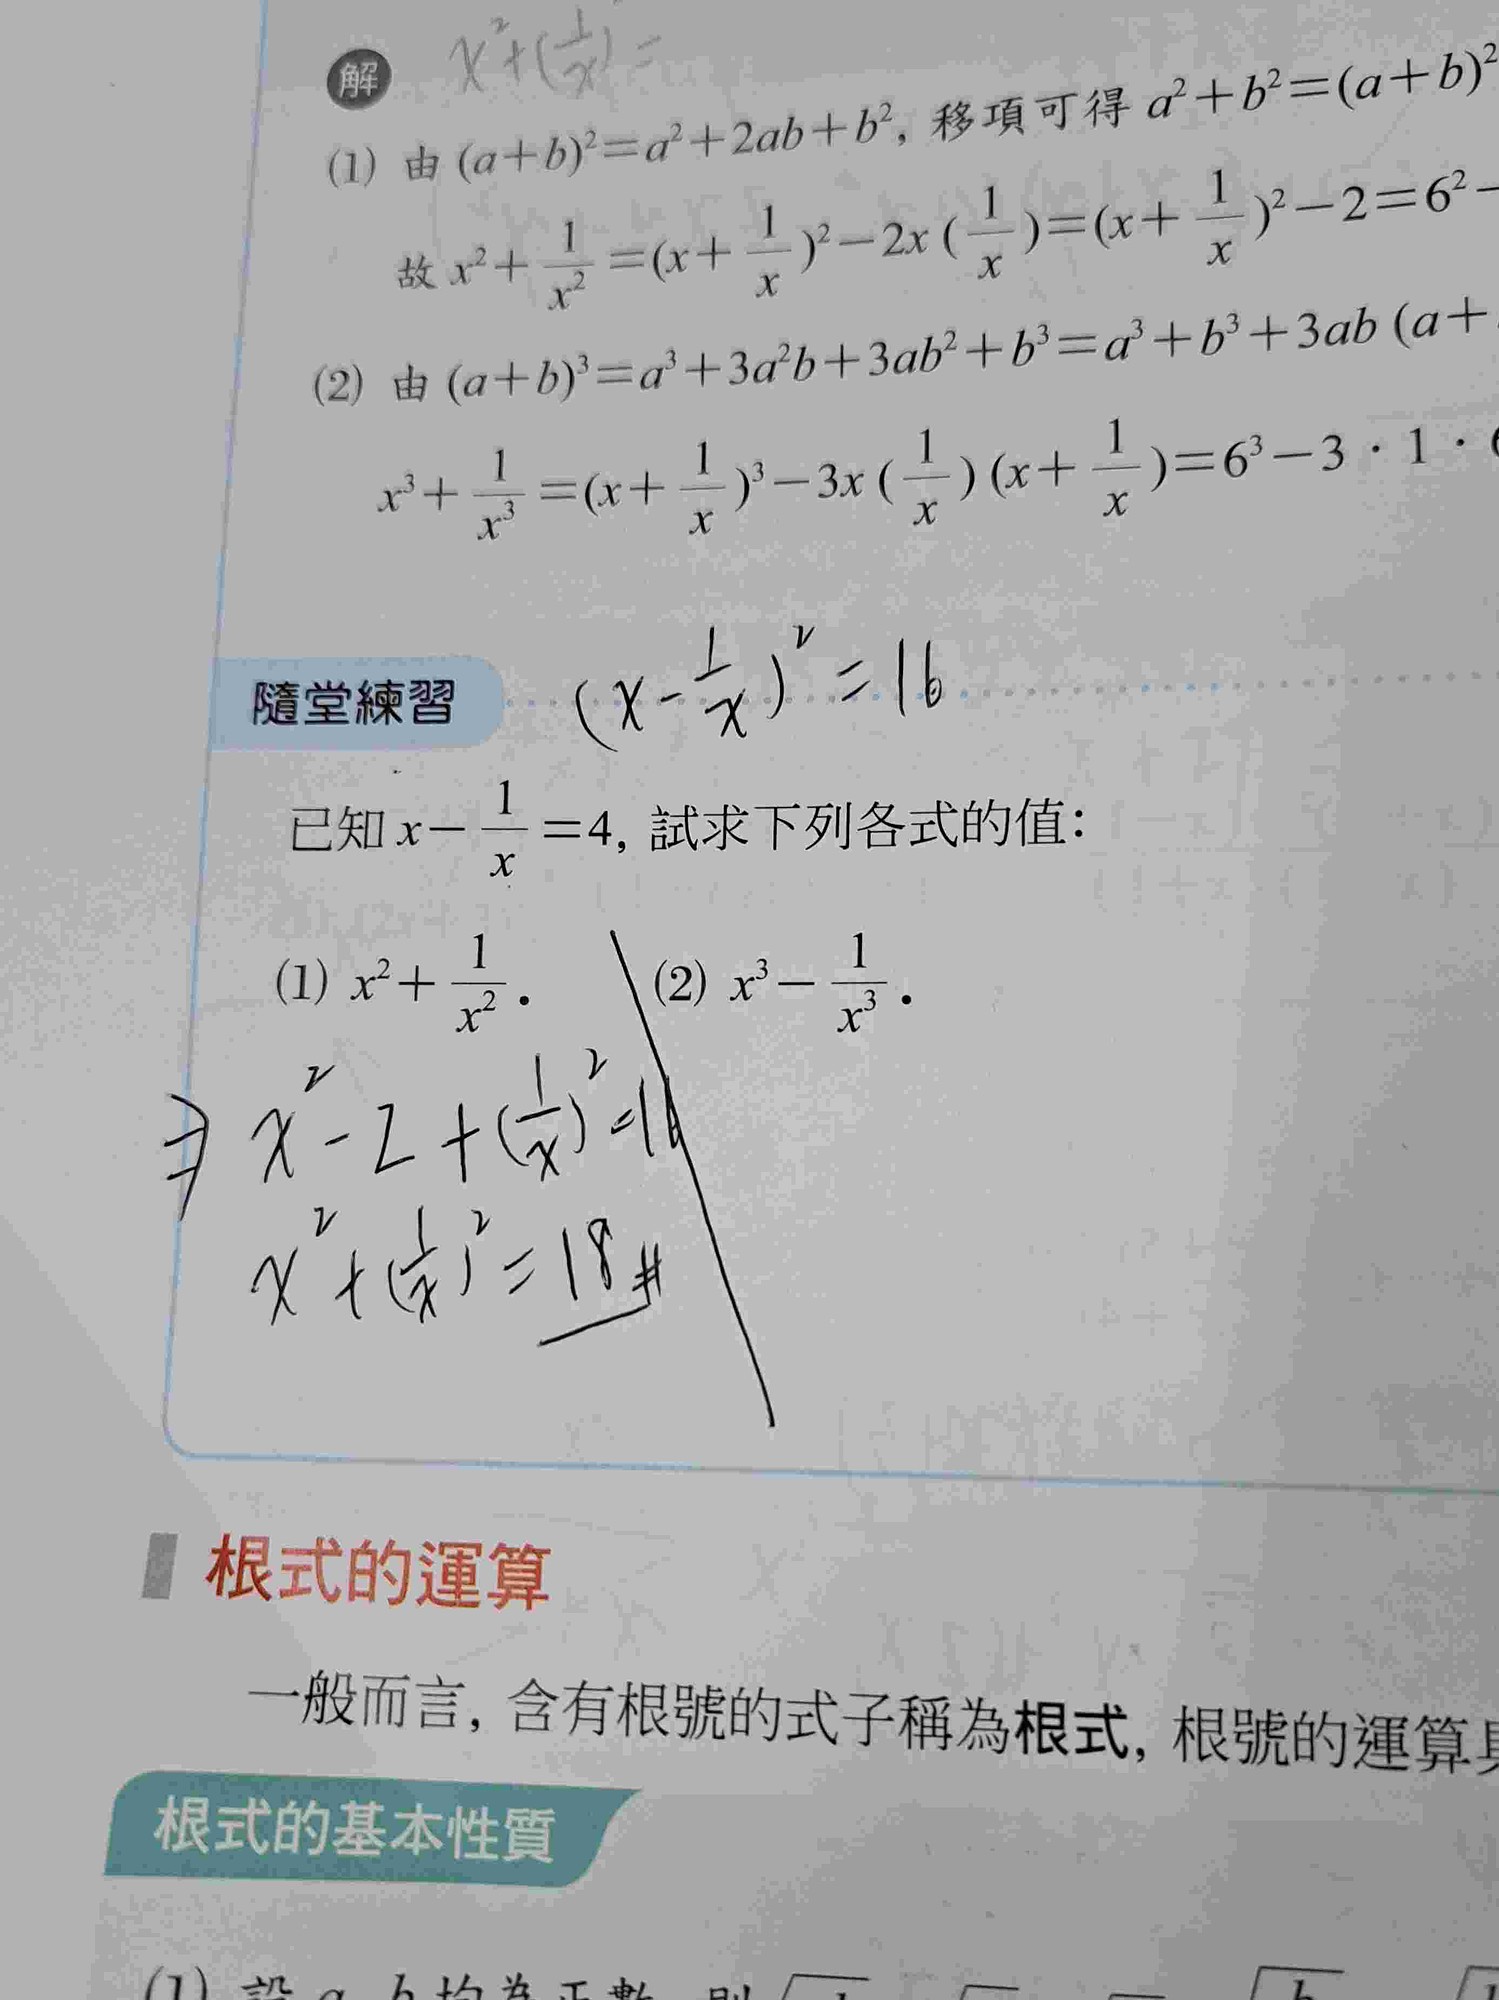 x²+(1/x)=
解
(1) 由 (a+b)²=a²+2ab+b², 移項可得 a²+b²=(a+b)²
故 x²+1/x²=(x+1/x)²−2x(1/x)=(x+1/x)²−2=6²−
(2) 由 (a+b)³=a³+3a²b+3ab²+b³=a³+b³+3ab(a+
x³+1/x³=(x+1/x)³−3x(1/x)(x+1/x)=6³−3·1·6
隨堂練習 (x−1/x)²=16
已知 x−1/x=4, 試求下列各式的值：
(1) x²+1/x². (2) x³−1/x³.
⇒ x²−2+(1/x)²=16
x²+(1/x)²=18#
根式的運算
一般而言, 含有根號的式子稱為根式, 根號的運算具
根式的基本性質
(1) 設 a, b 均為正數, 則